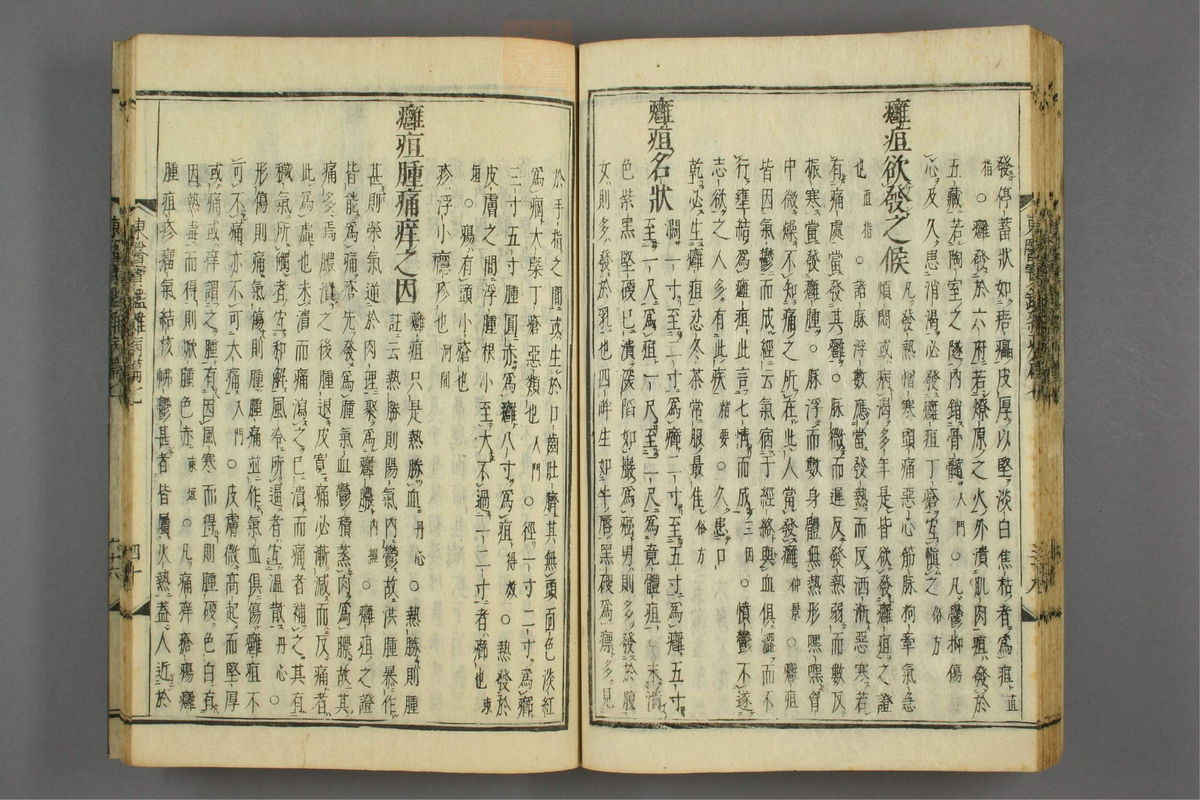 發停蓄狀如痦㿔皮厚以堅淡白焦枯者爲疽 直
指 ○癰發於六府若燎原之火外潰肌肉疽發於
五藏若陶室之隧內銷骨髓 入門 ○凡鬱抑傷
心及久患消渴必發癰疽丁瘡宜愼之 俗方
癰疽欲發之候 凡發熱憎寒頭痛惡心筋脉拘攣氣急
煩悶或病渴多年是皆欲發癰疽之證
也 直指 ○諸脉浮數應當發熱而反洒淅惡寒若
有痛處當發其癰○脉微而遲反發熱弱而數反
振寒當發癰腫○脉浮而數身體無熱形嘿嘿胷
中微燥不知痛之所在此人當發癰 仲景 ○癰疽
皆因氣鬱而成經云氣病于經絡與血俱澀而不
行壅結爲癰疽此言七情而成 三因 ○憤鬱不遂
志欲之人多有此疾 精要 ○久患口
乾必生癰疽忍冬茶常服最佳 俗方
癰疽名狀 濶一寸至二寸爲癤二寸至五寸爲癰五寸
至一尺爲疽一尺至二尺爲竟體疽○未潰
色紫黑堅硬已潰深陷如巖爲癌男則多發於腹
女則多發於乳也四畔生如牛唇黑硬爲瘭多見
於手指之間或生於口齒肚臍其無頭面色淡紅
爲癇大槩丁瘡惡類也 入門 ○徑一寸二寸爲癤
三寸五寸腫圓亦爲癰八寸爲疽 得效 ○熱發於
皮膚之間浮腫根小至大不過一二寸者癤也 東
垣 ○瘍有頭小瘡也
疹浮小癮疹也 河間
癰疽腫痛痒之因 癰疽只是熱勝血 丹心 ○熱勝則腫
註云熱勝則陽氣內鬱故洪腫暴作
甚則榮氣逆於肉理聚爲癰膿 內經 ○癰疽之證
皆能爲痛瘡先發爲腫氣血鬱積蒸肉爲膿故其
痛多焉膿潰之後腫退皮寬痛必漸減而反痛者
此爲虛也未潰而痛瀉之已潰而痛者補之其有
穢氣所觸者宜和解風冷所逼者宜溫散 丹心 ○
形傷則痛氣傷則腫腫痛並作氣血俱傷癰疽不
可不痛亦不可太痛 入門 ○皮膚微高起而堅厚
或痛或痒謂之腫有因風寒而得則腫硬色白有
因熱毒而得則焮腫色赤 東垣 ○凡痛痒瘡瘍癰
腫疽疹瘤氣結核怫鬱甚者皆屬火熱盖人近於
東醫寶鑑雜病篇七